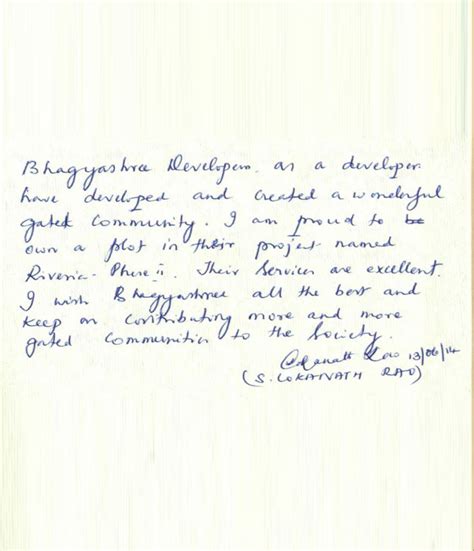 Bhagyashree Developers. as a developer
have developed and created a wonderful
gated Community. I am proud to be
own a plot in their project named
Riveria - Phase ii. Their Services are excellent.
I wish Bhagyashree all the best and
keep on contributing more and more
gated Communities to the Society.
Lokanath Rao 13/06/14
(S. LOKANATH RAO)